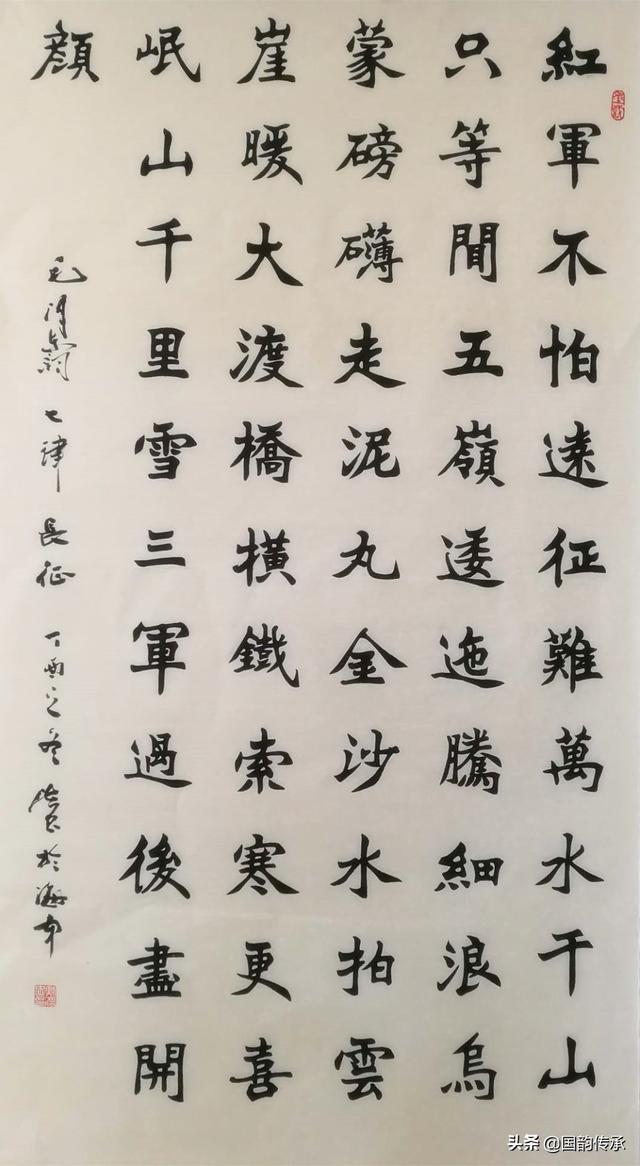 紅軍不怕遠征難萬水千山
只等閒五嶺逶迤騰細浪烏
蒙磅礴走泥丸金沙水拍雲
崖暖大渡橋橫鐵索寒更喜
岷山千里雪三軍過後盡開
顏
毛澤東詞七律長征丁酉之冬於海南
头条 @国韵传承